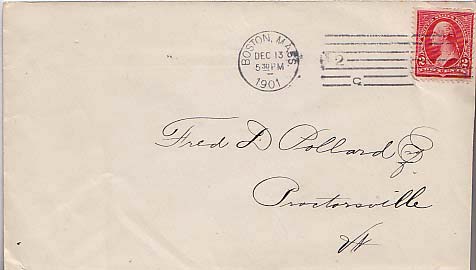 BOSTON, MASS
DEC 13
5 30 PM
1901
2
C
Fred D. Pollard Esq
Proctorsville
Vt